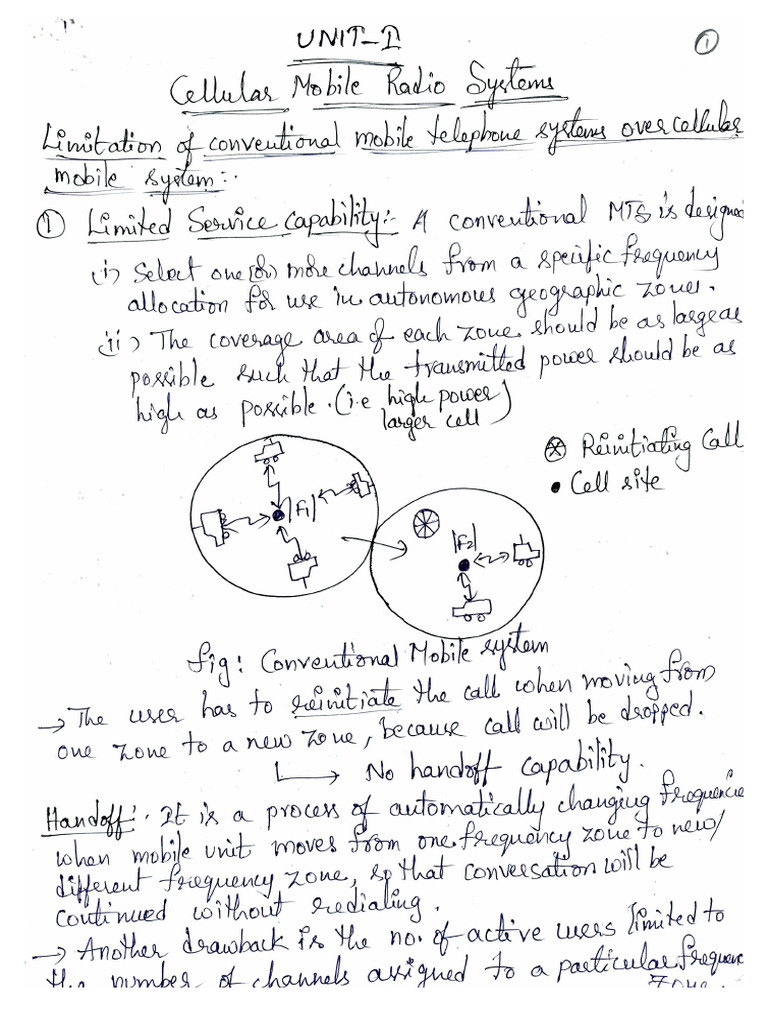 UNIT-I
①
Cellular Mobile Radio Systems
Limitation of conventional mobile telephone systems over cellular
mobile system:-
① Limited Service Capability:- A conventional MTS is designed
(i) Select one (or) more channels from a specific frequency
allocation for use in autonomous geographic zones.
(ii) The coverage area of each zone should be as large as
possible such that the transmitted power should be as
high as possible. (i.e high power
larger cell)
Reinitiating Call
Cell site
|F1|
|F2|
fig: Conventional Mobile system
→ The user has to reinitiate the call when moving from
one zone to a new zone, because call will be dropped.
↳ No handoff capability.
Handoff:- It is a process of automatically changing frequencie
when mobile unit moves from one frequency zone to new/
different frequency zone, so that conversation will be
continued without redialing.
→ Another drawback is the no. of active users limited to
the number of channels assigned to a particular frequenc
zone.